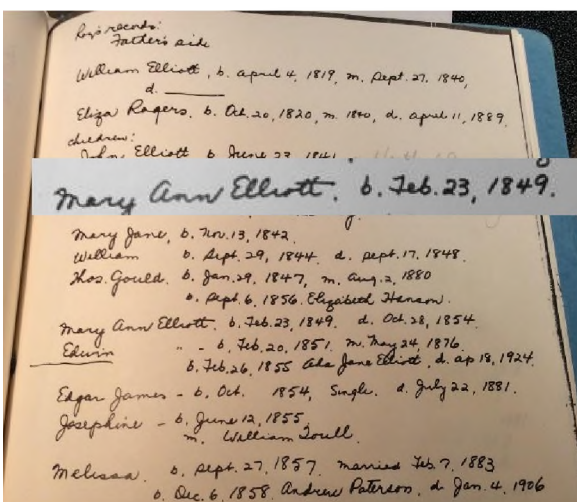 Roy's records:
Father's side
William Elliott, b. April 4, 1819, m. Sept. 27, 1840,
d.
Eliza Rogers, b. Oct. 20, 1820, m. 1840, d. April 11, 1889,
children:
John Elliott b June 23 1841
Mary Ann Elliott. b. Feb. 23, 1849.
Mary Jane, b. Nov. 13, 1842.
William b. Sept. 29, 1844. d. Sept. 17, 1848.
Thos. Gould. b. Jan. 29, 1847, m. Aug. 2, 1880
b. Sept. 6, 1856. Elizabeth Hanson.
Mary Ann Elliott. b. Feb. 23, 1849. d. Oct. 28, 1854.
Edwin " - b. Feb. 20, 1851. m. May 24, 1876.
b. Feb. 26, 1855 Ada Jane Elliott, d. ap 18, 1924.
Edgar James - b. Oct. 1854, Single. d. July 22, 1881.
Josephine - b. June 12, 1855
m. William
Melissa. b. Sept. 27, 1857. married Feb. 7, 1883
b. Dec. 6, 1858. Andrew Paterson, d. Jan. 4, 1906